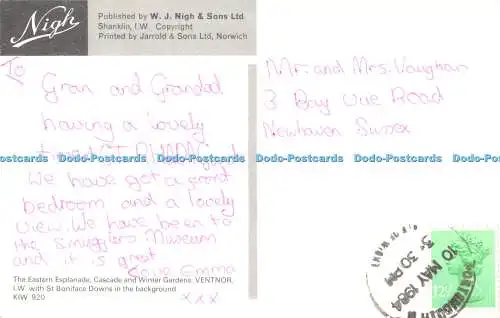 Nigh
Published by W. J. Nigh & Sons Ltd
Shanklin, I.W. Copyright
Printed by Jarrold & Sons Ltd, Norwich
To
Gran and Grandad
having a lovely
We have got a
bedroom and a lovely
view. We have been to
the Smugglers Museum
and it is great
love Emma
x x x
The Eastern Esplanade, Cascade and Winter Gardens, VENTNOR,
I.W. with St Boniface Downs in the background
KIW 920
Mr. and Mrs. Vaughan
3 Bay Vue Road
Newhaven Sussex
3. 30 PM
10 MAY 1984
Dodo-Postcards Dodo-Postcards Dodo-Postcards Dodo-Postcards Dodo-Postcards